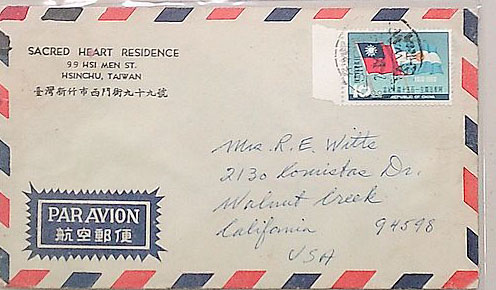 SACRED HEART RESIDENCE
99 HSI MEN ST.
HSINCHU, TAIWAN
臺灣新竹市西門街九十九號
REPUBLIC OF CHINA
Mrs. R. E. Witts
2130 Lomistas Dr.
Walnut Creek
California 94598
USA
PAR AVION
航空郵便